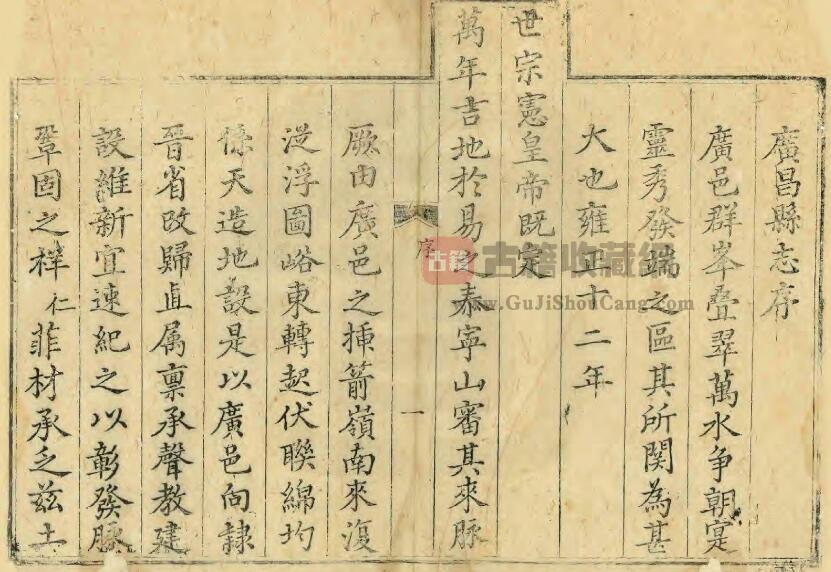 廣昌縣志序
廣邑群峯疊翠萬水争朝寔
靈秀發端之區其所関為甚
大也雍正十二年
世宗憲皇帝既定
萬年吉地於易之泰寧山審其来脉
序
一
厰由廣邑之揷箭嶺南來復
浮圖峪東轉起伏聯綿均
係天造地設是以廣邑向隸
晉省改歸直属禀承聲教建
設維新宜速紀之以彰發脉
鞏固之祥仁菲材承乏兹土
古籍
古籍收藏網
www.GuJiShouCang.com